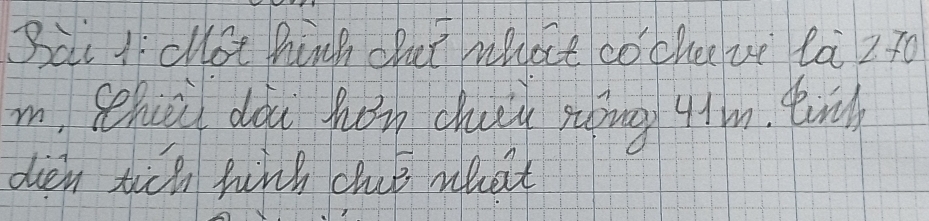 Bài 1: Một hình chữ nhật có chu vi là 270
m, chiều dài hơn chiều rộng 41m. Tính
diện tích hình chữ nhật